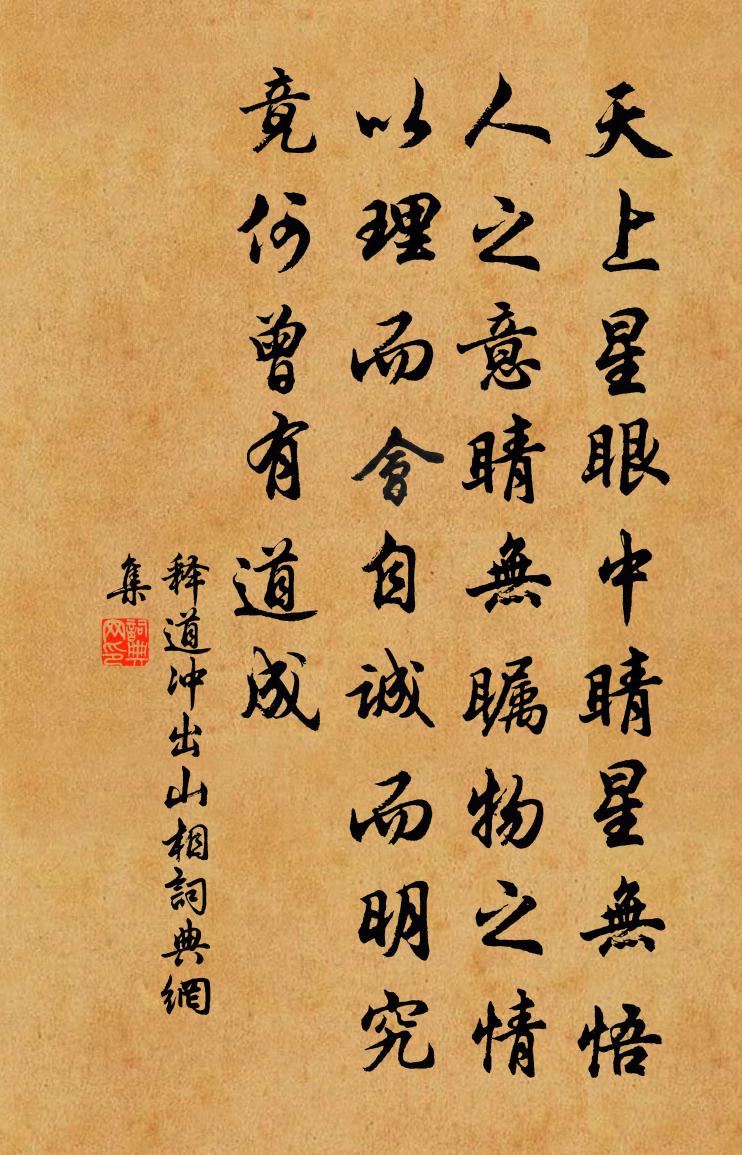 天上星眼中睛星無悟
人之意睛無瞩物之情
以理而會自诚而明究
竟何曾有道成
释道冲出山相詞典網
集
詞典
网印